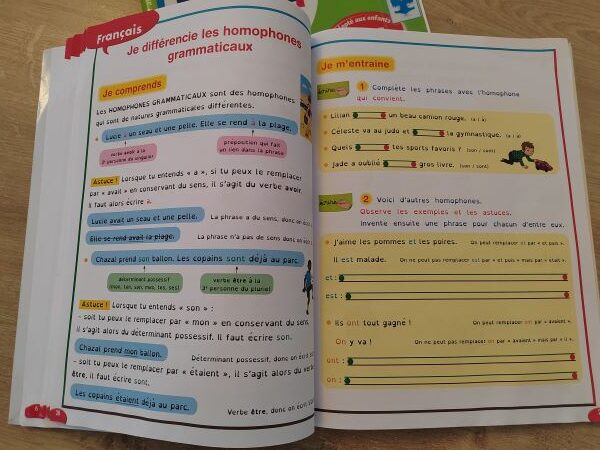 Français
Je différencie les homophones
grammaticaux
Je comprends
Les HOMOPHONES GRAMMATICAUX sont des homophones
qui sont de natures grammaticales différentes.
Lucie a un seau et une pelle. Elle se rend à la plage.
verbe avoir à la
3e personne du singulier
préposition qui fait
un lien dans la phrase
Astuce ! Lorsque tu entends « a », si tu peux le remplacer
par « avait » en conservant du sens, il s'agit du verbe avoir.
Il faut alors écrire a.
Lucie avait un seau et une pelle. La phrase a du sens, donc on
Elle se rend avait la plage. La phrase n'a pas de sens donc
Chazal prend son ballon. Les copains sont déjà au parc.
déterminant possessif
(mon, ton, son, mes, tes, ses)
verbe être à la
3e personne du pluriel
Astuce ! Lorsque tu entends « son » :
- soit tu peux le remplacer par « mon » en conservant du sens,
il s'agit alors du déterminant possessif. Il faut écrire son.
Chazal prend mon ballon. Déterminant possessif, donc on
- soit tu peux le remplacer par « étaient », il s'agit alors du verbe
être, il faut écrire sont.
Les copains étaient déjà au parc. Verbe être, donc on
Je m'entraine
1 Complète les phrases avec l'homophone
qui convient.
Lilian un beau camion rouge. (a / à)
Céleste va au judo et la gymnastique. (a / à)
Quels les sports favoris ? (son / sont)
Jade a oublié gros livre. (son / sont)
2 Voici d'autres homophones.
Observe les exemples et les astuces.
Invente ensuite une phrase pour chacun d'entre eux.
J'aime les pommes et les poires. On peut remplacer et par « et puis ».
Il est malade. On ne peut pas remplacer est par « et puis » mais par « était ».
et :
est :
Ils ont tout gagné ! On peut remplacer ont par « avaient ».
On y va ! On ne peut pas remplacer on par « avaient » mais par « il ».
ont :
on :